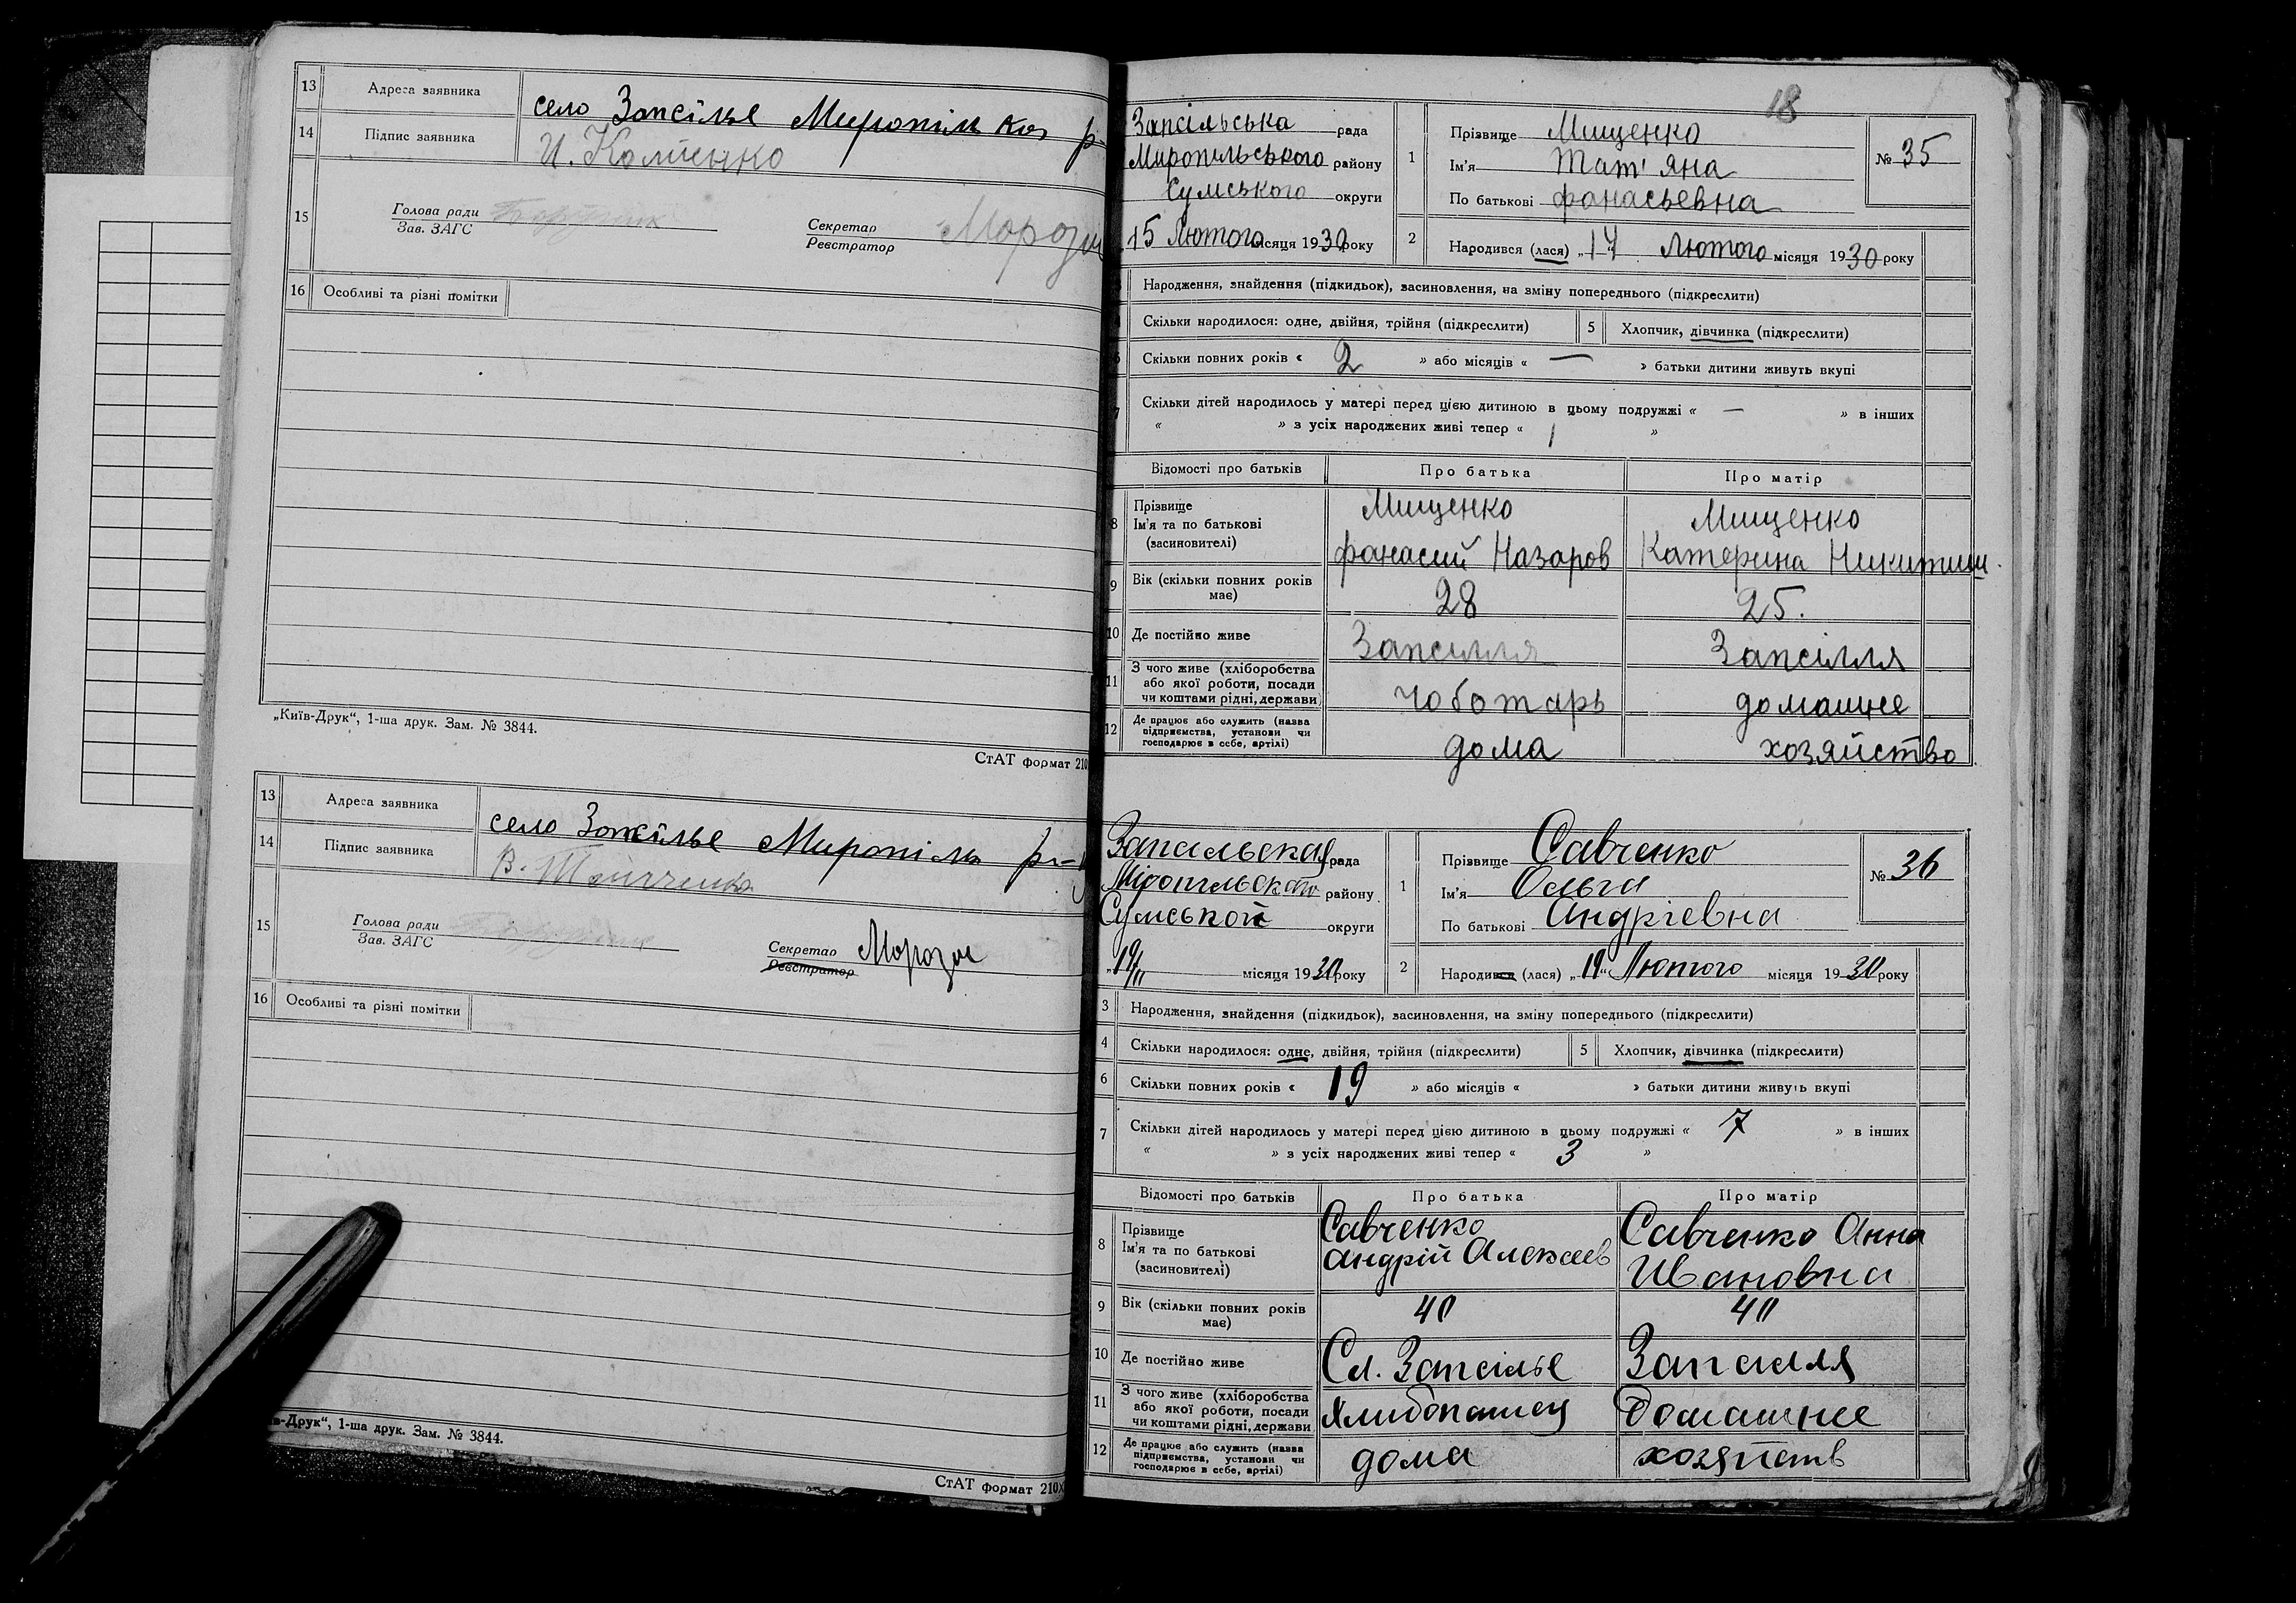 13 Адреса заявника село Запсілье Миропільског р-
14 Підпис заявника И. Коменко
15 Голова ради
Зав. ЗАГС
Секретар
Реєстратор
Мороз
16 Особливі та різні помітки
„Київ-Друк“, 1-ша друк. Зам. № 3844.
СтАТ формат 210
13 Адреса заявника село Запсілье Миропіль р-
14 Підпис заявника В.
15 Голова ради
Зав. ЗАГС
Секретар
Реєстратор
Мороз
16 Особливі та різні помітки
в-Друк“, 1-ша друк. Зам. № 3844.
СтАТ формат 210х
18
Запсільська рада
Миропильського району
Сумського округи
„15 Лютого місяця 1930 року
1 Прізвище Мищенко
Ім'я Тат'яна
По батькові фанасьевна
№ 35
2 Народився (лася) „14“ Лютого місяця 1930 року
Народження, знайдення (підкидьок), засиновлення, на зміну попереднього (підкреслити)
Скільки народилося: одне, двійня, трійня (підкреслити) 5 Хлопчик, дівчинка (підкреслити)
6 Скільки повних років « 2 » або місяців « — » батьки дитини живуть вкупі
7 Скільки дітей народилось у матері перед цією дитиною в цьому подружжі « — » в інших
« » з усіх народжених живі тепер « 1 »
Відомості про батьків Про батька Про матір
8 Прізвище
Ім'я та по батькові
(засиновителі)
Мищенко
фанасий Назаров
Мищенко
Катерина Никитишн.
9 Вік (скільки повних років має) 28 25.
10 Де постійно живе Запсилля Запсілля
11 З чого живе (хліборобства
або якої роботи, посади
чи коштами рідні, держави)
чоботарь
домашнее
12 Де працює або служить (назва
підприємства, установи чи
господарює в себе, артілі)
дома
хозяйство
Запсильская рада
Міропильского району
Сумськой округи
„19/II місяця 1930 року
1 Прізвище Савченко
Ім'я Ольга
По батькові Андріевна
№ 36
2 Народився (лася) „19“ Лютого місяця 1930 року
3 Народження, знайдення (підкидьок), засиновлення, на зміну попереднього (підкреслити)
4 Скільки народилося: одне, двійня, трійня (підкреслити) 5 Хлопчик, дівчинка (підкреслити)
6 Скільки повних років « 19 » або місяців « » батьки дитини живуть вкупі
7 Скільки дітей народилось у матері перед цією дитиною в цьому подружжі « 7 » в інших
« » з усіх народжених живі тепер « 3 »
Відомості про батьків Про батька Про матір
8 Прізвище
Ім'я та по батькові
(засиновителі)
Савченко
Андрій Алексеев
Савченко Анна
Ивановна
9 Вік (скільки повних років має) 40 40
10 Де постійно живе Сл. Запсілье Запсилля
11 З чого живе (хліборобства
або якої роботи, посади
чи коштами рідні, держави
Хлибопашец
Домашнее
12 Де працює або служить (назва
підприємства, установи чи
господарює в себе, артілі)
дома
хозяйств